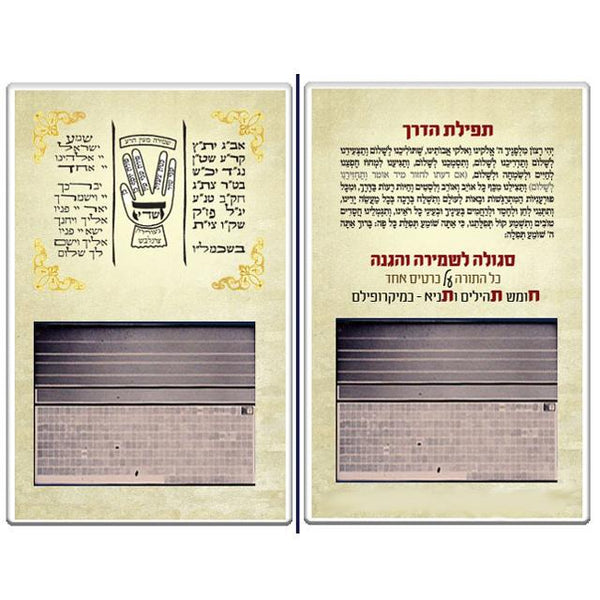 אב״ג ית״ץ
קר״ע שט״ן
נג״ד יכ״ש
בט״ר צת״ג
חק״ב טנ״ע
יג״ל פז״ק
שק״ו צי״ת
בשכמל״ו
שמירה מעין הרע
שדי
שמע
ישראל
יי אלהינו
יי אחד
יברכך
יי וישמרך
יאר יי פניו
אליך ויחנך
ישא יי פניו
אליך וישם
לך שלום
תפילת הדרך
יְהִי רָצוֹן מִלְּפָנֶיךָ ה׳ אֱלֹקֵינוּ וֵאלֹקֵי אֲבוֹתֵינוּ, שֶׁתּוֹלִיכֵנוּ לְשָׁלוֹם וְתַצְעִידֵנוּ
לְשָׁלוֹם וְתַדְרִיכֵנוּ לְשָׁלוֹם, וְתִסְמְכֵנוּ לְשָׁלוֹם, וְתַגִּיעֵנוּ לִמְחוֹז חֶפְצֵנוּ
לְחַיִּים וּלְשִׂמְחָה וּלְשָׁלוֹם, (אם דעתו לחזור מיד אומר וְתַחֲזִירֵנוּ
לְשָׁלוֹם) וְתַצִּילֵנוּ מִכַּף כָּל אוֹיֵב וְאוֹרֵב וְלִסְטִים וְחַיּוֹת רָעוֹת בַּדֶּרֶךְ, וּמִכָּל
פֻּרְעָנֻיּוֹת הַמִּתְרַגְּשׁוֹת וּבָאוֹת לְעוֹלָם וְתִשְׁלַח בְּרָכָה בְּכָל מַעֲשֵׂה יָדֵינוּ,
וְתִתְּנֵנִי לְחֵן וּלְחֶסֶד וּלְרַחֲמִים בְּעֵינֶיךָ וּבְעֵינֵי כָל רוֹאֵינוּ, וְתִגְמְלֵנוּ חֲסָדִים
טוֹבִים וְתִשְׁמַע קוֹל תְּפִלָּתֵנוּ, כִּי אַתָּה שׁוֹמֵעַ תְּפִלַּת כָּל פֶּה: בָּרוּךְ אַתָּה
ה׳ שׁוֹמֵעַ תְּפִלָּה:
סגולה לשמירה והגנה
כל התורה על כרטיס אחד
חומש תהילים ותניא - במיקרופילם